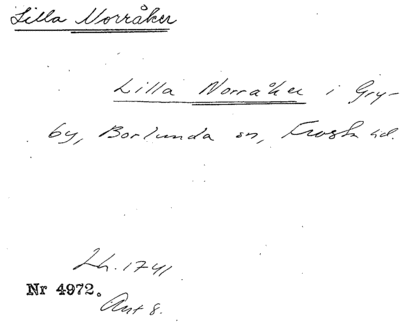 Lilla Norråker
Lilla Norråker i Gry-
by, Borlunda sn, Frosta hd.
Lh. 1741
Nr 4972.
Akt 8.